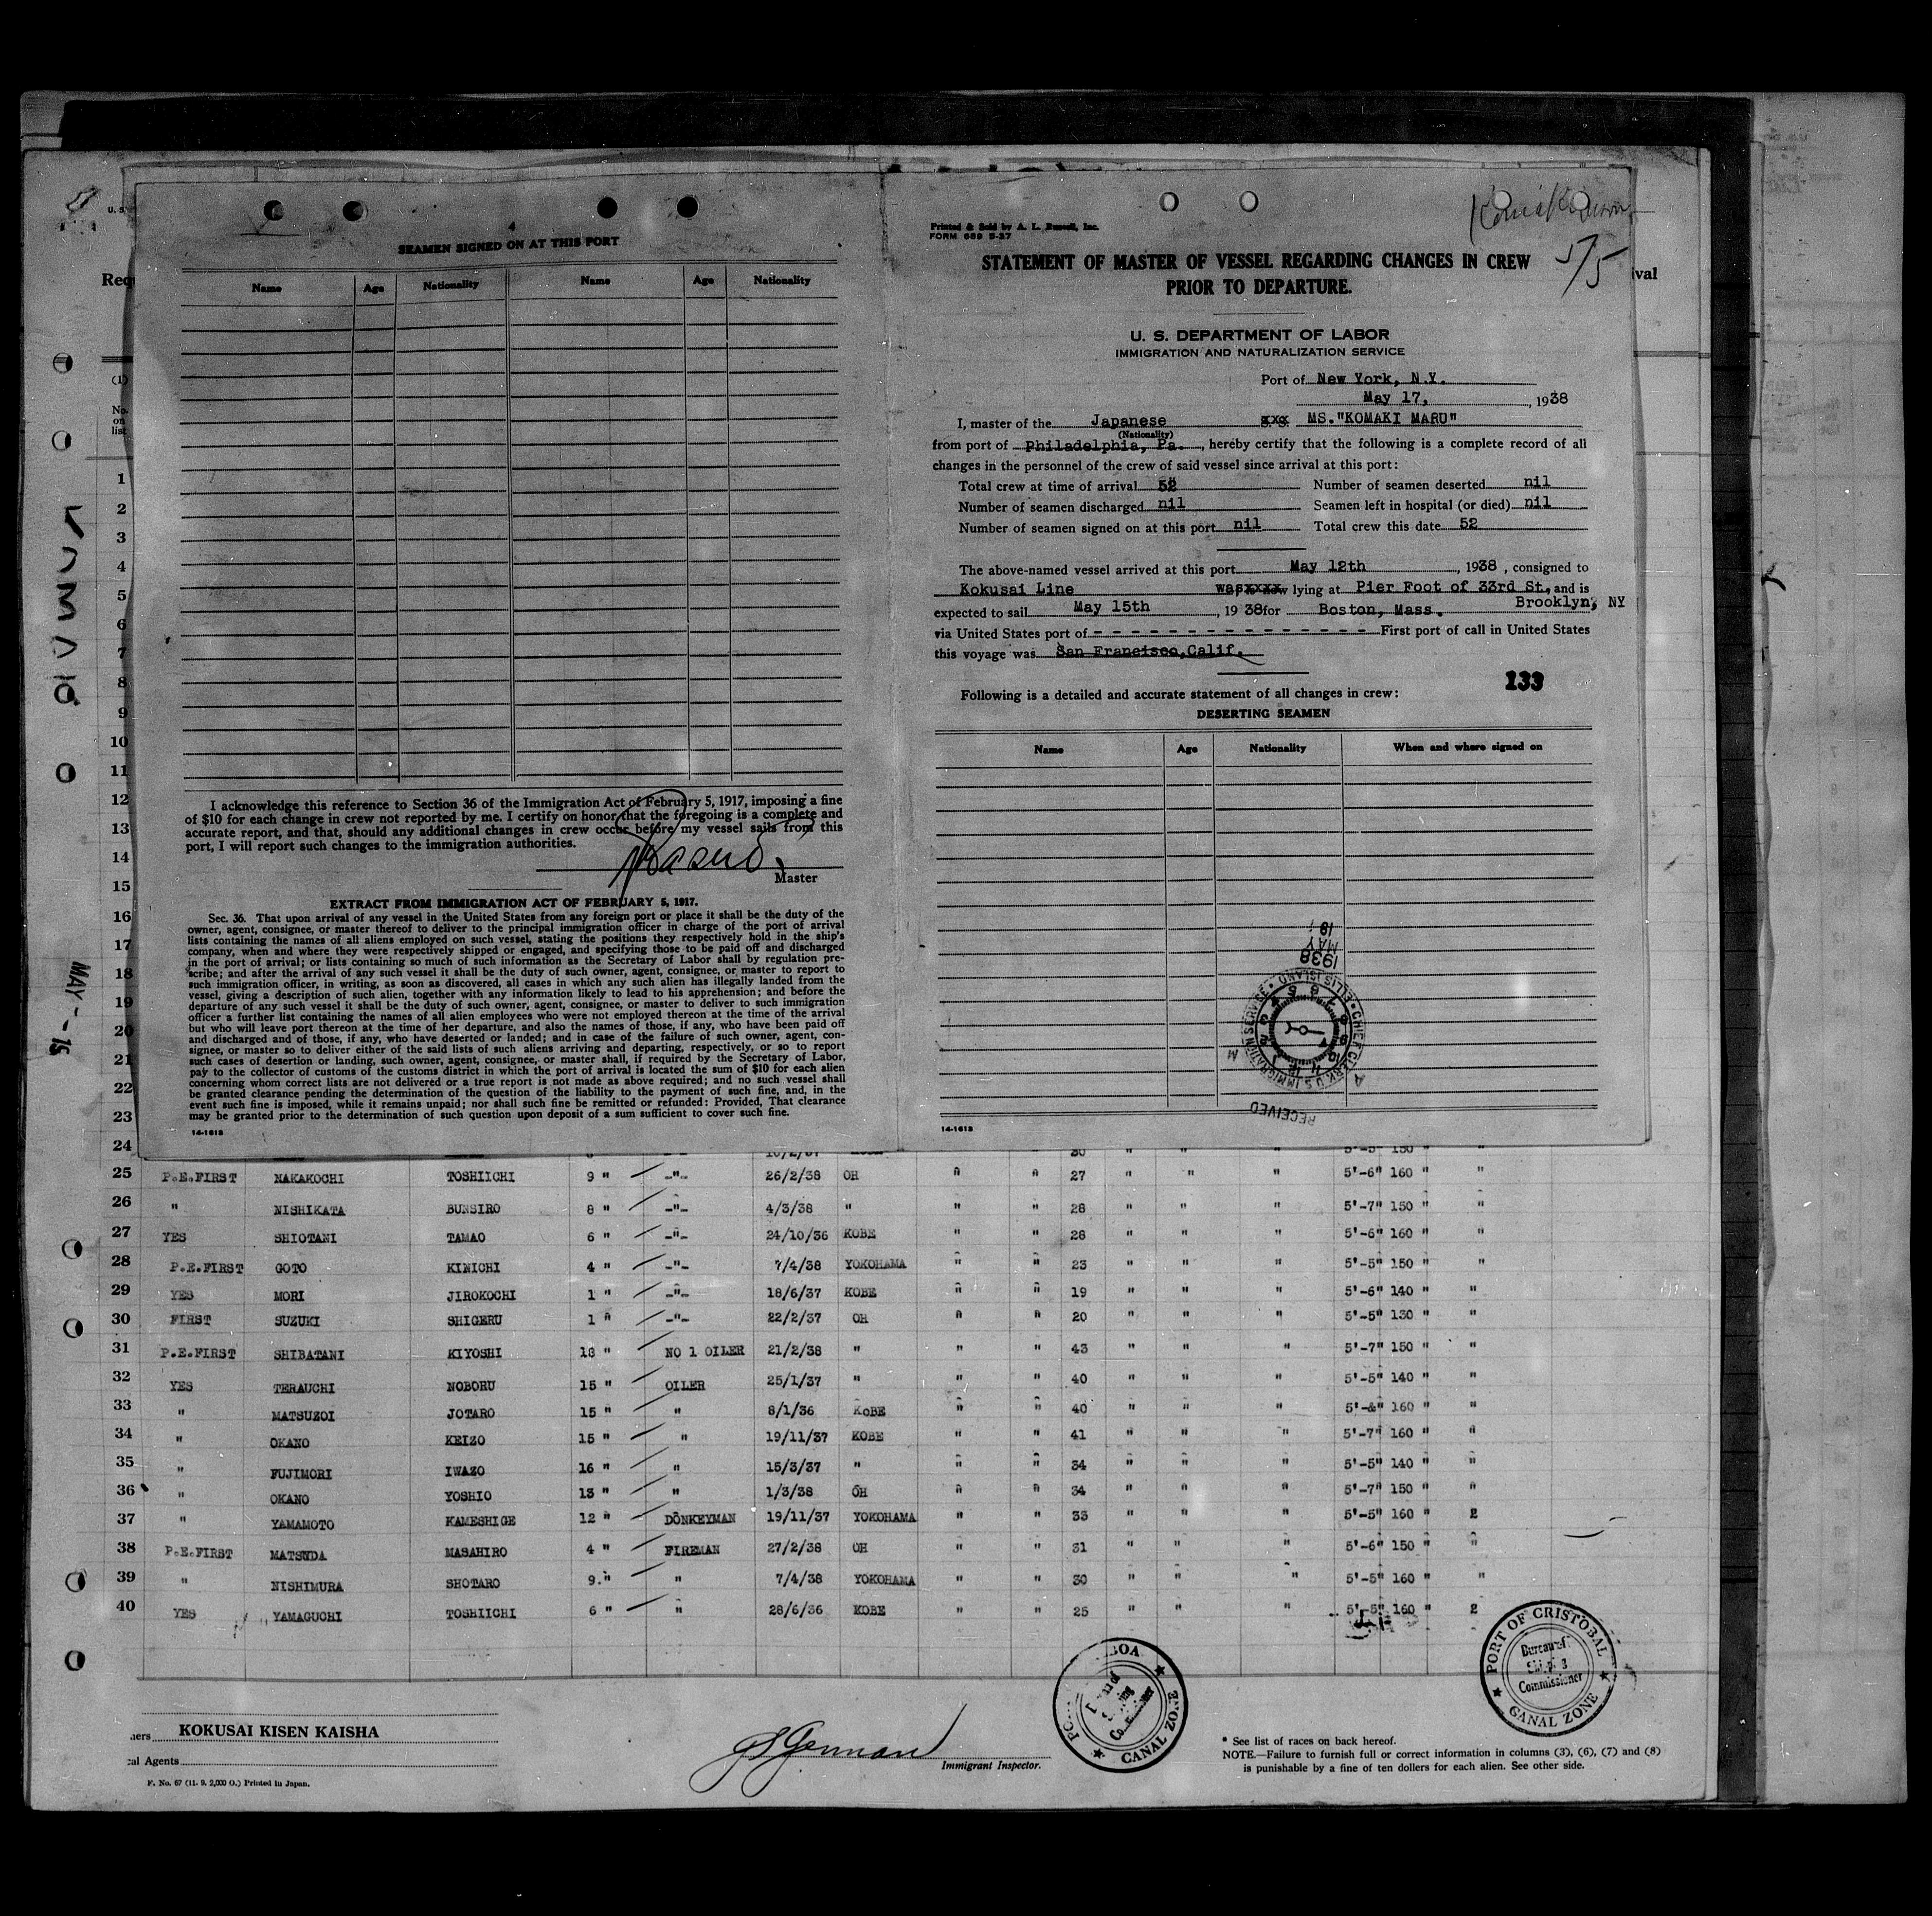 4
SEAMEN SIGNED ON AT THIS PORT
Name Age Nationality Name Age Nationality
I acknowledge this reference to Section 36 of the Immigration Act of February 5, 1917, imposing a fine
of $10 for each change in crew not reported by me. I certify on honor that the foregoing is a complete and
accurate report, and that, should any additional changes in crew occur before my vessel sails from this
port, I will report such changes to the immigration authorities.
Master
EXTRACT FROM IMMIGRATION ACT OF FEBRUARY 5, 1917.
Sec. 36. That upon arrival of any vessel in the United States from any foreign port or place it shall be the duty of the
owner, agent, consignee, or master thereof to deliver to the principal immigration officer in charge of the port of arrival
lists containing the names of all aliens employed on such vessel, stating the positions they respectively hold in the ship's
company, when and where they were respectively shipped or engaged, and specifying those to be paid off and discharged
in the port of arrival; or lists containing so much of such information as the Secretary of Labor shall by regulation pre-
scribe; and after the arrival of any such vessel it shall be the duty of such owner, agent, consignee, or master to report to
such immigration officer, in writing, as soon as discovered, all cases in which any such alien has illegally landed from the
vessel, giving a description of such alien, together with any information likely to lead to his apprehension; and before the
departure of any such vessel it shall be the duty of such owner, agent, consignee, or master to deliver to such immigration
officer a further list containing the names of all alien employees who were not employed thereon at the time of the arrival
but who will leave port thereon at the time of her departure, and also the names of those, if any, who have been paid off
and discharged and of those, if any, who have deserted or landed; and in case of the failure of such owner, agent, con-
signee, or master so to deliver either of the said lists of such aliens arriving and departing, respectively, or so to report
such cases of desertion or landing, such owner, agent, consignee, or master shall, if required by the Secretary of Labor,
pay to the collector of customs of the customs district in which the port of arrival is located the sum of $10 for each alien
concerning whom correct lists are not delivered or a true report is not made as above required; and no such vessel shall
be granted clearance pending the determination of the question of the liability to the payment of such fine, and, in the
event such fine is imposed, while it remains unpaid; nor shall such fine be remitted or refunded: Provided, That clearance
may be granted prior to the determination of such question upon deposit of a sum sufficient to cover such fine.
14-1613
Printed & Sold by A. L. Russell, Inc.
FORM 689 5-37
Komaki Maru
5/5
STATEMENT OF MASTER OF VESSEL REGARDING CHANGES IN CREW
PRIOR TO DEPARTURE.
U. S. DEPARTMENT OF LABOR
IMMIGRATION AND NATURALIZATION SERVICE
Port of New York, N.Y.
May 17, , 1938
I, master of the Japanese MS."KOMAKI MARU"
(Nationality)
from port of Philadelphia, Pa. , hereby certify that the following is a complete record of all
changes in the personnel of the crew of said vessel since arrival at this port:
Total crew at time of arrival 52 Number of seamen deserted nil
Number of seamen discharged nil Seamen left in hospital (or died) nil
Number of seamen signed on at this port nil Total crew this date 52
The above-named vessel arrived at this port May 12th , 1938 , consigned to
Kokusai Line was lying at Pier Foot of 33rd St. and is
Brooklyn, NY
expected to sail May 15th , 1938 for Boston, Mass.
via United States port of - - - - - - - - - - - - - - - First port of call in United States
this voyage was San Francisco, Calif.
133
Following is a detailed and accurate statement of all changes in crew:
DESERTING SEAMEN
Name Age Nationality When and where signed on
1938
MAY
19
CHIEF CLERK U.S. IMMIGRATION SERVICE • ELLIS ISLAND
RECEIVED
14-1613
U. S.
Req
val
(1)
No. on list
1
2
3
4
5
6
7
8
9
10
11
12
13
14
15
16
17
18
19
20
21
22
23
MAY - 15
24 30 " " " 5'-5" 150 " "
25 P.E.FIRST NAKAKOCHI TOSHIICHI 9 " -"- 26/2/38 OH " " 27 " " " 5'-6" 160 " "
26 " NISHIKATA BUNSIRO 8 " -"- 4/3/38 " " " 28 " " " 5'-7" 150 " "
27 YES SHIOTANI TAMAO 6 " -"- 24/10/36 KOBE " " 28 " " " 5'-6" 160 " "
28 P.E.FIRST GOTO KINICHI 4 " -"- 7/4/38 YOKOHAMA " " 23 " " " 5'-5" 150 " "
29 YES MORI JIROKOCHI 1 " -"- 18/6/37 KOBE " " 19 " " " 5'-6" 140 " "
30 FIRST SUZUKI SHIGERU 1 " -"- 22/2/37 OH " " 20 " " " 5'-5" 130 " "
31 P.E.FIRST SHIBATANI KIYOSHI 18 " NO 1 OILER 21/2/38 " " " 43 " " " 5'-7" 150 " "
32 YES TERAUCHI NOBORU 15 " OILER 25/1/37 " " " 40 " " " 5'-5" 140 " "
33 " MATSUZOI JOTARO 15 " " 8/1/36 KOBE " " 40 " " " 160 " "
34 " OKANO KEIZO 15 " " 19/11/37 KOBE " " 41 " " " 5'-7" 160 " "
35 " FUJIMORI IWAZO 16 " " 15/3/37 " " " 34 " " " 5'-5" 140 " "
36 " OKANO YOSHIO 13 " " 1/3/38 OH " " 34 " " " 5'-7" 150 " "
37 " YAMAMOTO KAMESHIGE 12 " DONKEYMAN 19/11/37 YOKOHAMA " " 33 " " " 5'-5" 160 " 2
38 P.E.FIRST MATSUDA MASAHIRO 4 " FIREMAN 27/2/38 OH " " 31 " " " 5'-6" 150 " "
39 " NISHIMURA SHOTARO 9 " " 7/4/38 YOKOHAMA " " 30 " " " 5'-5" 160 " "
40 YES YAMAGUCHI TOSHIICHI 6 " " 28/6/36 KOBE " " 25 " " " 5'-5" 160 " 2
ners KOKUSAI KISEN KAISHA
cal Agents
F. No. 67 (11. 9. 2,000 O.) Printed in Japan.
Immigrant Inspector.
BOA CANAL ZONE
PORT OF CRISTOBAL
Bureau of
Commissioner
CANAL ZONE
* See list of races on back hereof.
NOTE.—Failure to furnish full or correct information in columns (3), (6), (7) and (8)
is punishable by a fine of ten dollars for each alien. See other side.